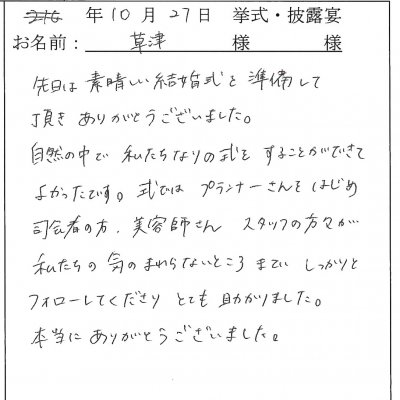 年10月27日 挙式・披露宴
お名前： 草津 様 様
先日は 素晴しい結婚式を 準備して
頂き ありがとうございました。
自然の中で 私たちなりの式を することができて
よかったです。式では プランナーさんをはじめ
司会者の方、美容師さん スタッフの方々が
私たちの 気のまわらないところ まで しっかりと
フォローしてくださり とても 助かりました。
本当に ありがとうございました。